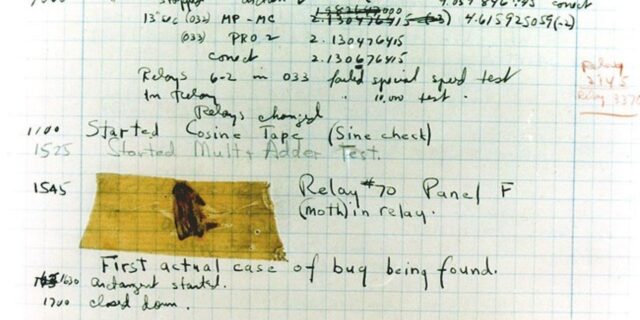 13"uc (032) MP-MC 2.130476415 4.615925059(-2)
(033) PRO 2 2.130476415
conect 2.130676415
Relays 6-2 in 033 failed special speed test
In Relay " 10.000 test.
Relays changed
Relay
2145
Relay 3370
1100 Started Cosine Tape (Sine check)
1525 Started Mult+Adder Test.
1545 Relay #70 Panel F
(moth) in relay.
First actual case of bug being found.
1630 antangent started.
1700 closed down.